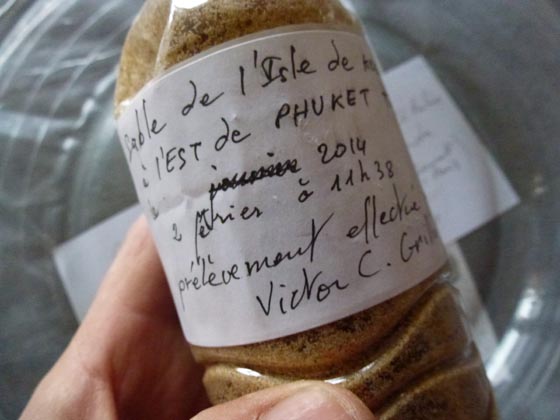 Sable de l'Isle de
à l'EST de PHUKET
janvier 2014
2 février à 11h38
prélèvement effectué
Victor C.